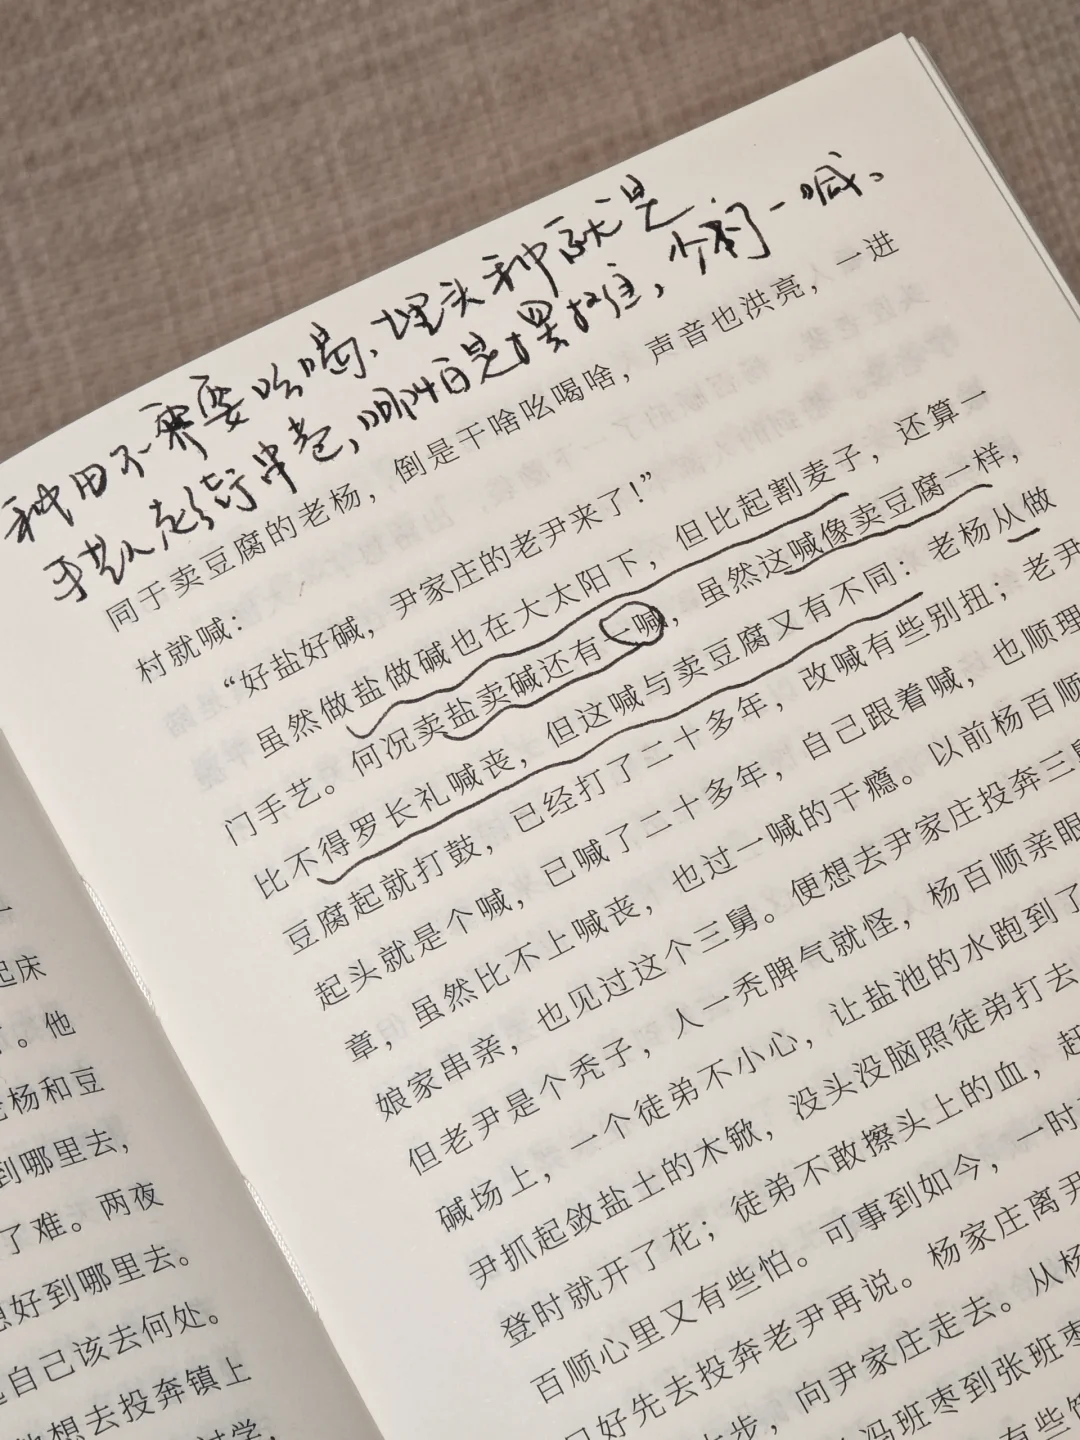 种田不需要吆喝、埋头种就是.
手艺人走街串巷,哪怕是摆摊,少不了一喊、
同于卖豆腐的老杨,倒是干啥吆喝啥,声音也洪亮,一进
村就喊:
“好盐好碱,尹家庄的老尹来了!”
虽然做盐做碱也在大太阳下,但比起割麦子,还算一
门手艺。何况卖盐卖碱还有一喊,虽然这喊像卖豆腐一样,
比不得罗长礼喊丧,但这喊与卖豆腐又有不同:老杨从做
豆腐起就打鼓,已经打了二十多年,改喊有些别扭;老尹
起头就是个喊,已喊了二十多年,自己跟着喊,也顺理
章,虽然比不上喊丧,也过一喊的干瘾。以前杨百顺
娘家串亲,也见过这个三舅。便想去尹家庄投奔三舅
但老尹是个秃子,人一秃脾气就怪,杨百顺亲眼
碱场上,一个徒弟不小心,让盐池的水跑到了
尹抓起敛盐土的木锨,没头没脑照徒弟打去
登时就开了花;徒弟不敢擦头上的血,赶
百顺心里又有些怕。可事到如今,一时
只好先去投奔老尹再说。杨家庄离尹
步,向尹家庄走去。从杨
冯班枣到张班枣
有些
起床
。他
老杨和豆
到哪里去,
了难。两夜
想好到哪里去。
自己该去何处。
他想去投奔镇上
过学,